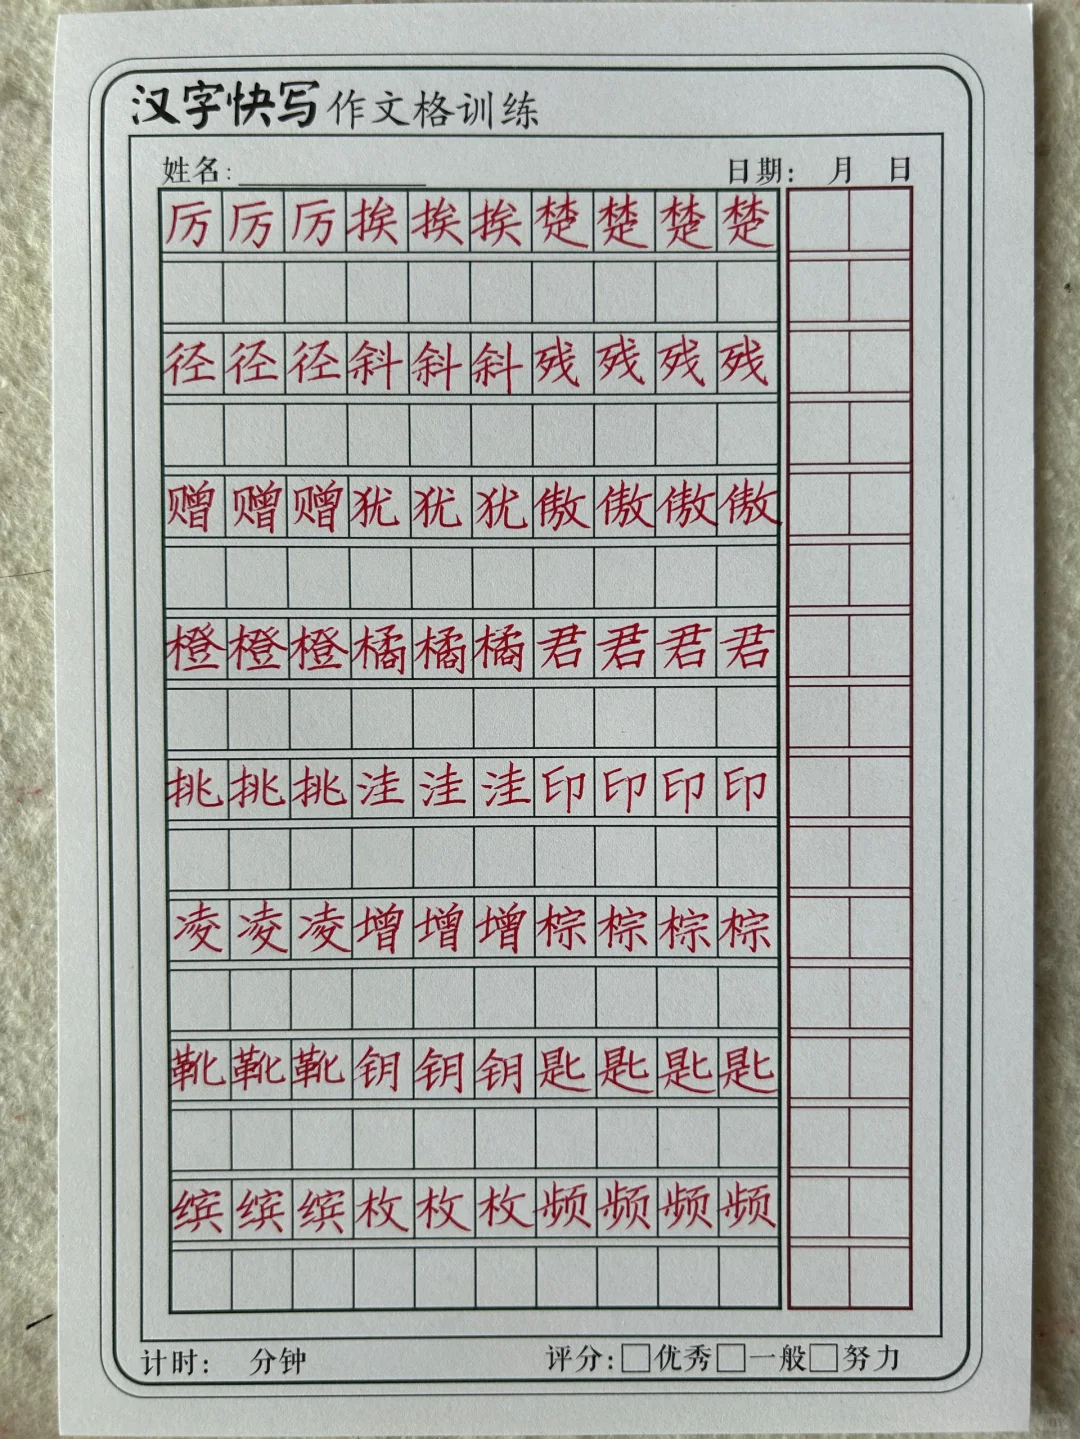 汉字快写作文格训练
姓名： 日期： 月 日
厉厉厉挨挨挨楚楚楚楚
径径径斜斜斜残残残残
赠赠赠犹犹犹傲傲傲傲
橙橙橙橘橘橘君君君君
挑挑挑洼洼洼印印印印
凌凌凌增增增棕棕棕棕
靴靴靴钥钥钥匙匙匙匙
缤缤缤枚枚枚频频频频
计时： 分钟 评分：□优秀□一般□努力